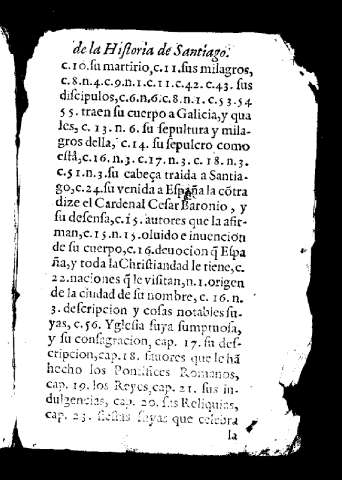 de la Historia de Santiago.
c.10. su martirio, c.11. sus milagros,
c.8. n.4. c.9. n.1. c.11. c.42. c.43. sus
discipulos, c.6. n.6. c.8. n.1. c.53. 54
55. traen su cuerpo a Galicia, y qua
les, c. 13. n. 6. su sepultura y mila-
gros della, c. 14. su sepulcro como
està, c.16. n.3. c.17. n.3. c. 18. n.3.
c.51. n.3. su cabeça traida a Santia-
go, c.24. su venida a España la cõtra
dize el Cardenal Cesar Baronio, y
su defensa, c.15. autores que la afir-
man, c.15. n.15. oluido e inuencion
de su cuerpo, c.16. deuocion q̃ Espa
ña, y toda la Christiandad le tiene, c.
22. naciones q̃ le visitan, n.1. origen
de la ciudad de su nombre, c. 16. n.
3. descripcion y cosas notables su-
yas, c.56. Yglesia suya sumptuosa,
y su consagracion, cap. 17. su des-
cripcion, cap.18. fauores que le hã
hecho los Pontifices Romanos,
cap. 19. los Reyes, cap. 21. sus in-
dulgencias, cap. 20. sus Reliquias,
cap. 23. fiestas suyas que celebra
la